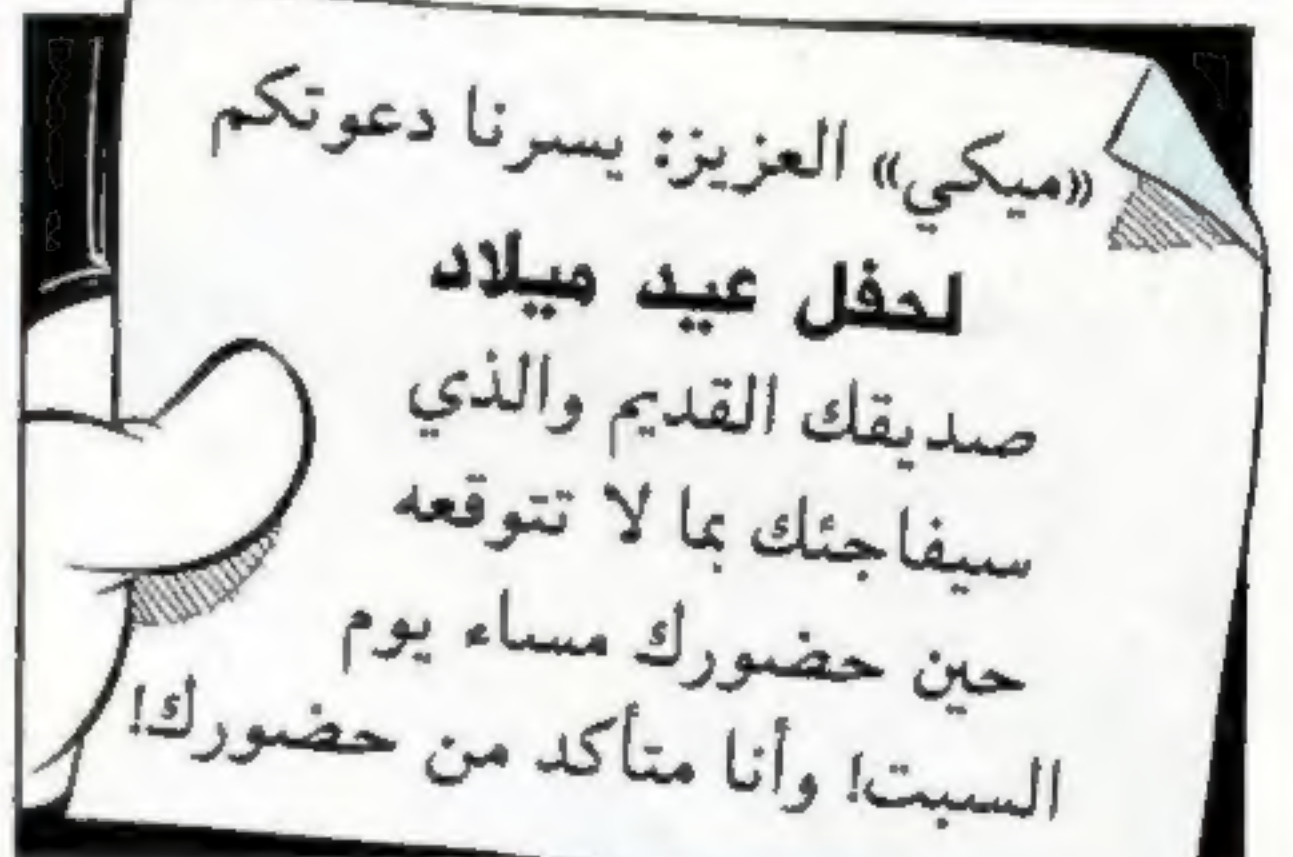 «ميكي» العزيز: يسرنا دعوتكم
لحفل عيد ميلاد
صديقك القديم والذي
سيفاجئك بما لا تتوقعه
حين حضورك مساء يوم
السبت! وأنا متأكد من حضورك!